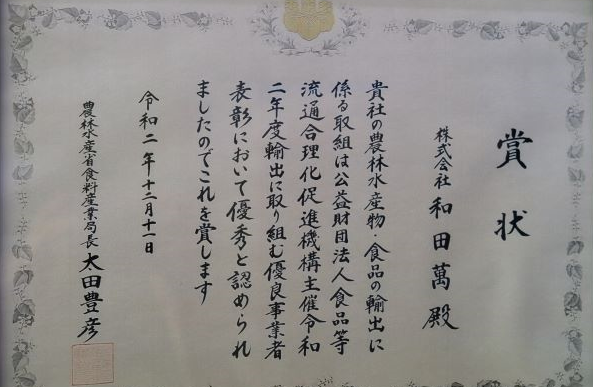 賞状
株式会社 和田萬 殿
貴社の農林水産物・食品の輸出に
係る取組は公益財団法人食品等
流通合理化促進機構主催令和
二年度輸出に取り組む優良事業者
表彰において優秀と認められ
ましたのでこれを賞します
令和二年十二月十一日
農林水産省食料産業局長 太田豊彦